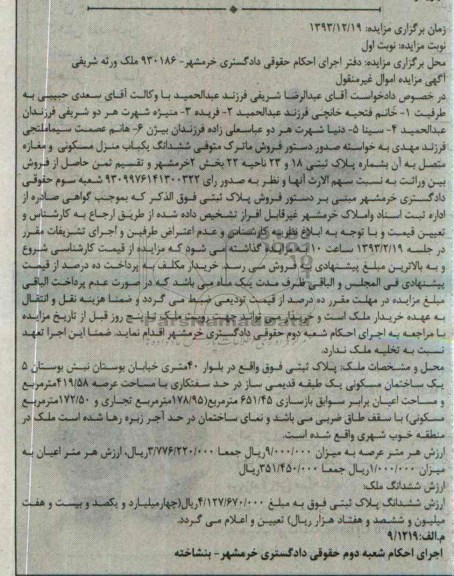 زمان برگزاری مزایده: ۱۳۹۳/۱۲/۱۹
نوبت مزایده: نوبت اول
محل برگزاری مزایده: دفتر اجرای احکام حقوقی دادگستری خرمشهر- ۹۳۰۱۸۶ ملک ورثه شریفی
آگهی مزایده اموال غیرمنقول
در خصوص دادخواست آقای عبدالرضا شریفی فرزند عبدالحمید با وکالت آقای سعدی حبیبی به
طرفیت ۱- خانم فتحیه خانجی فرزند عبدالحمید ۲- فریده ۳- منیژه شهرت هر دو شریفی فرزندان
عبدالحمید ۴- سینا ۵- دنیا شهرت هر دو عباسعلی زاده فرزندان بیژن ۶- هانم عصمت سیماملتجی
فرزند مهدی به خواسته صدور دستور فروش ماترک متوفی ششدانگ یکباب منزل مسکونی و مغازه
متصل به آن بشماره پلاک ثبتی ۱۸ و ۲۳ ناحیه ۲۲ بخش ۲خرمشهر و تقسیم ثمن حاصل از فروش
بین وراثت به نسبت سهم الارث آنها و نظر به صدور رای ۹۳۰۹۹۷۶۱۴۱۳۰۰۳۲۲ شعبه سوم حقوقی
دادگستری خرمشهر مبنی بر دستور فروش پلاک ثبتی فوق الذکر که بموجب گواهی صادره از
اداره ثبت اسناد واملاک خرمشهر غیرقابل افراز تشخیص داده شده از طریق ارجاع به کارشناس و
تعیین قیمت و با توجه به ابلاغ نظریه کارشناس و عدم اعتراض طرفین و اجرای تشریفات مقرر
در جلسه ۱۳۹۳/۲/۱۹ ساعت ۱۰ به مزایده گذاشته می شود که مزایده از قیمت کارشناسی شروع
و به بالاترین مبلغ پیشنهادی به فروش می رسد. خریدار مکلف به پرداخت ده درصد از قیمت
پیشنهادی فی المجلس و الباقی ظرف مدت یک ماه می باشد که در صورت عدم پرداخت الباقی
مبلغ مزایده در مهلت مقرر ده درصد از قیمت تودیعی ضبط می گردد و ضمنا هزینه نقل و انتقال
به عهده خریدار ملک است و خریدار می تواند جهت رویت ملک تا پنج روز قبل از تاریخ مزایده
با مراجعه به اجرای احکام شعبه دوم حقوقی دادگستری خرمشهر اقدام نماید. ضمنا این اجرا تعهد
نسبت به تخلیه ملک ندارد.
محل و مشخصات ملک: پلاک ثبتی فوق واقع در بلوار ۴۰متری خیابان بوستان نبش بوستان ۵
یک ساختمان مسکونی یک طبقه قدیمی ساز در حد سفتکاری با مساحت عرصه ۴۱۹/۵۸مترمربع
و مساحت اعیان برابر سوابق بازسازی ۶۵۱/۴۵ مترمربع(۱۷۸/۹۵مترمربع تجاری و ۱۷۲/۵۰مترمربع
مسکونی) با سقف طاق ضربی می باشد و نمای ساختمان در حد آجر زبره رها شده است ملک در
منطقه خوب شهری واقع شده است.
ارزش هر متر عرصه به میزان ۹/۰۰۰/۰۰۰ریال جمعا ۳/۷۷۶/۲۲۰/۰۰۰ریال، ارزش هر متر اعیان به
میزان ۱/۰۰۰/۰۰۰ریال جمعا ۳۵۱/۴۵۰/۰۰۰ریال
ارزش ششدانگ ملک:
ارزش ششدانگ پلاک ثبتی فوق به مبلغ ۴/۱۲۷/۶۷۰/۰۰۰ریال(چهارمیلیارد و یکصد و بیست و هفت
میلیون و ششصد و هفتاد هزار ریال) تعیین و اعلام می گردد.
م.الف:۹/۱۲۱۹
اجرای احکام شعبه دوم حقوقی دادگستری خرمشهر- بنشاخته